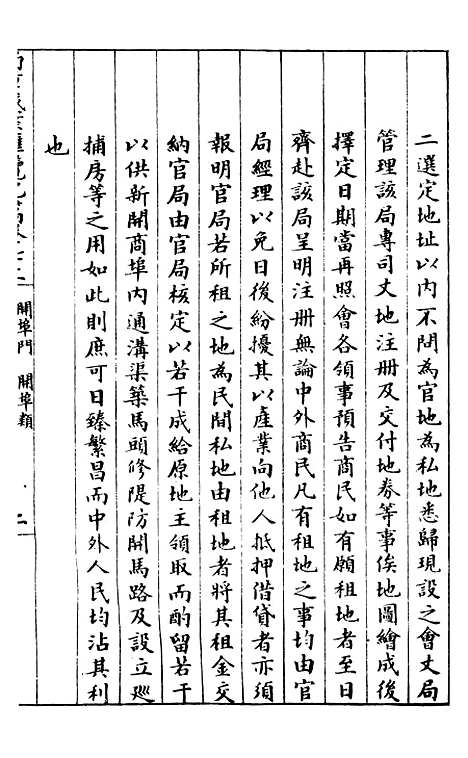 二選定地址以內不問為官地為私地悉歸現設之會丈局
管理該局專司丈地注册及交付地券等事俟地圖繪成後
擇定日期當再照會各領事預告商民如有願租地者至日
齊赴該局呈明注册無論中外商民凡有租地之事均由官
局經理以免日後紛擾其以產業向他人抵押借貸者亦須
報明官局若所租之地為民間私地由租地者將其租金交
納官局由官局核定以若干成給原地主領取而酌留若干
以供新開商埠內通溝渠築馬頭修隄防開馬路及設立巡
捕房等之用如此則庶可日臻繁昌而中外人民均沾其利
也
開埠門 開埠類